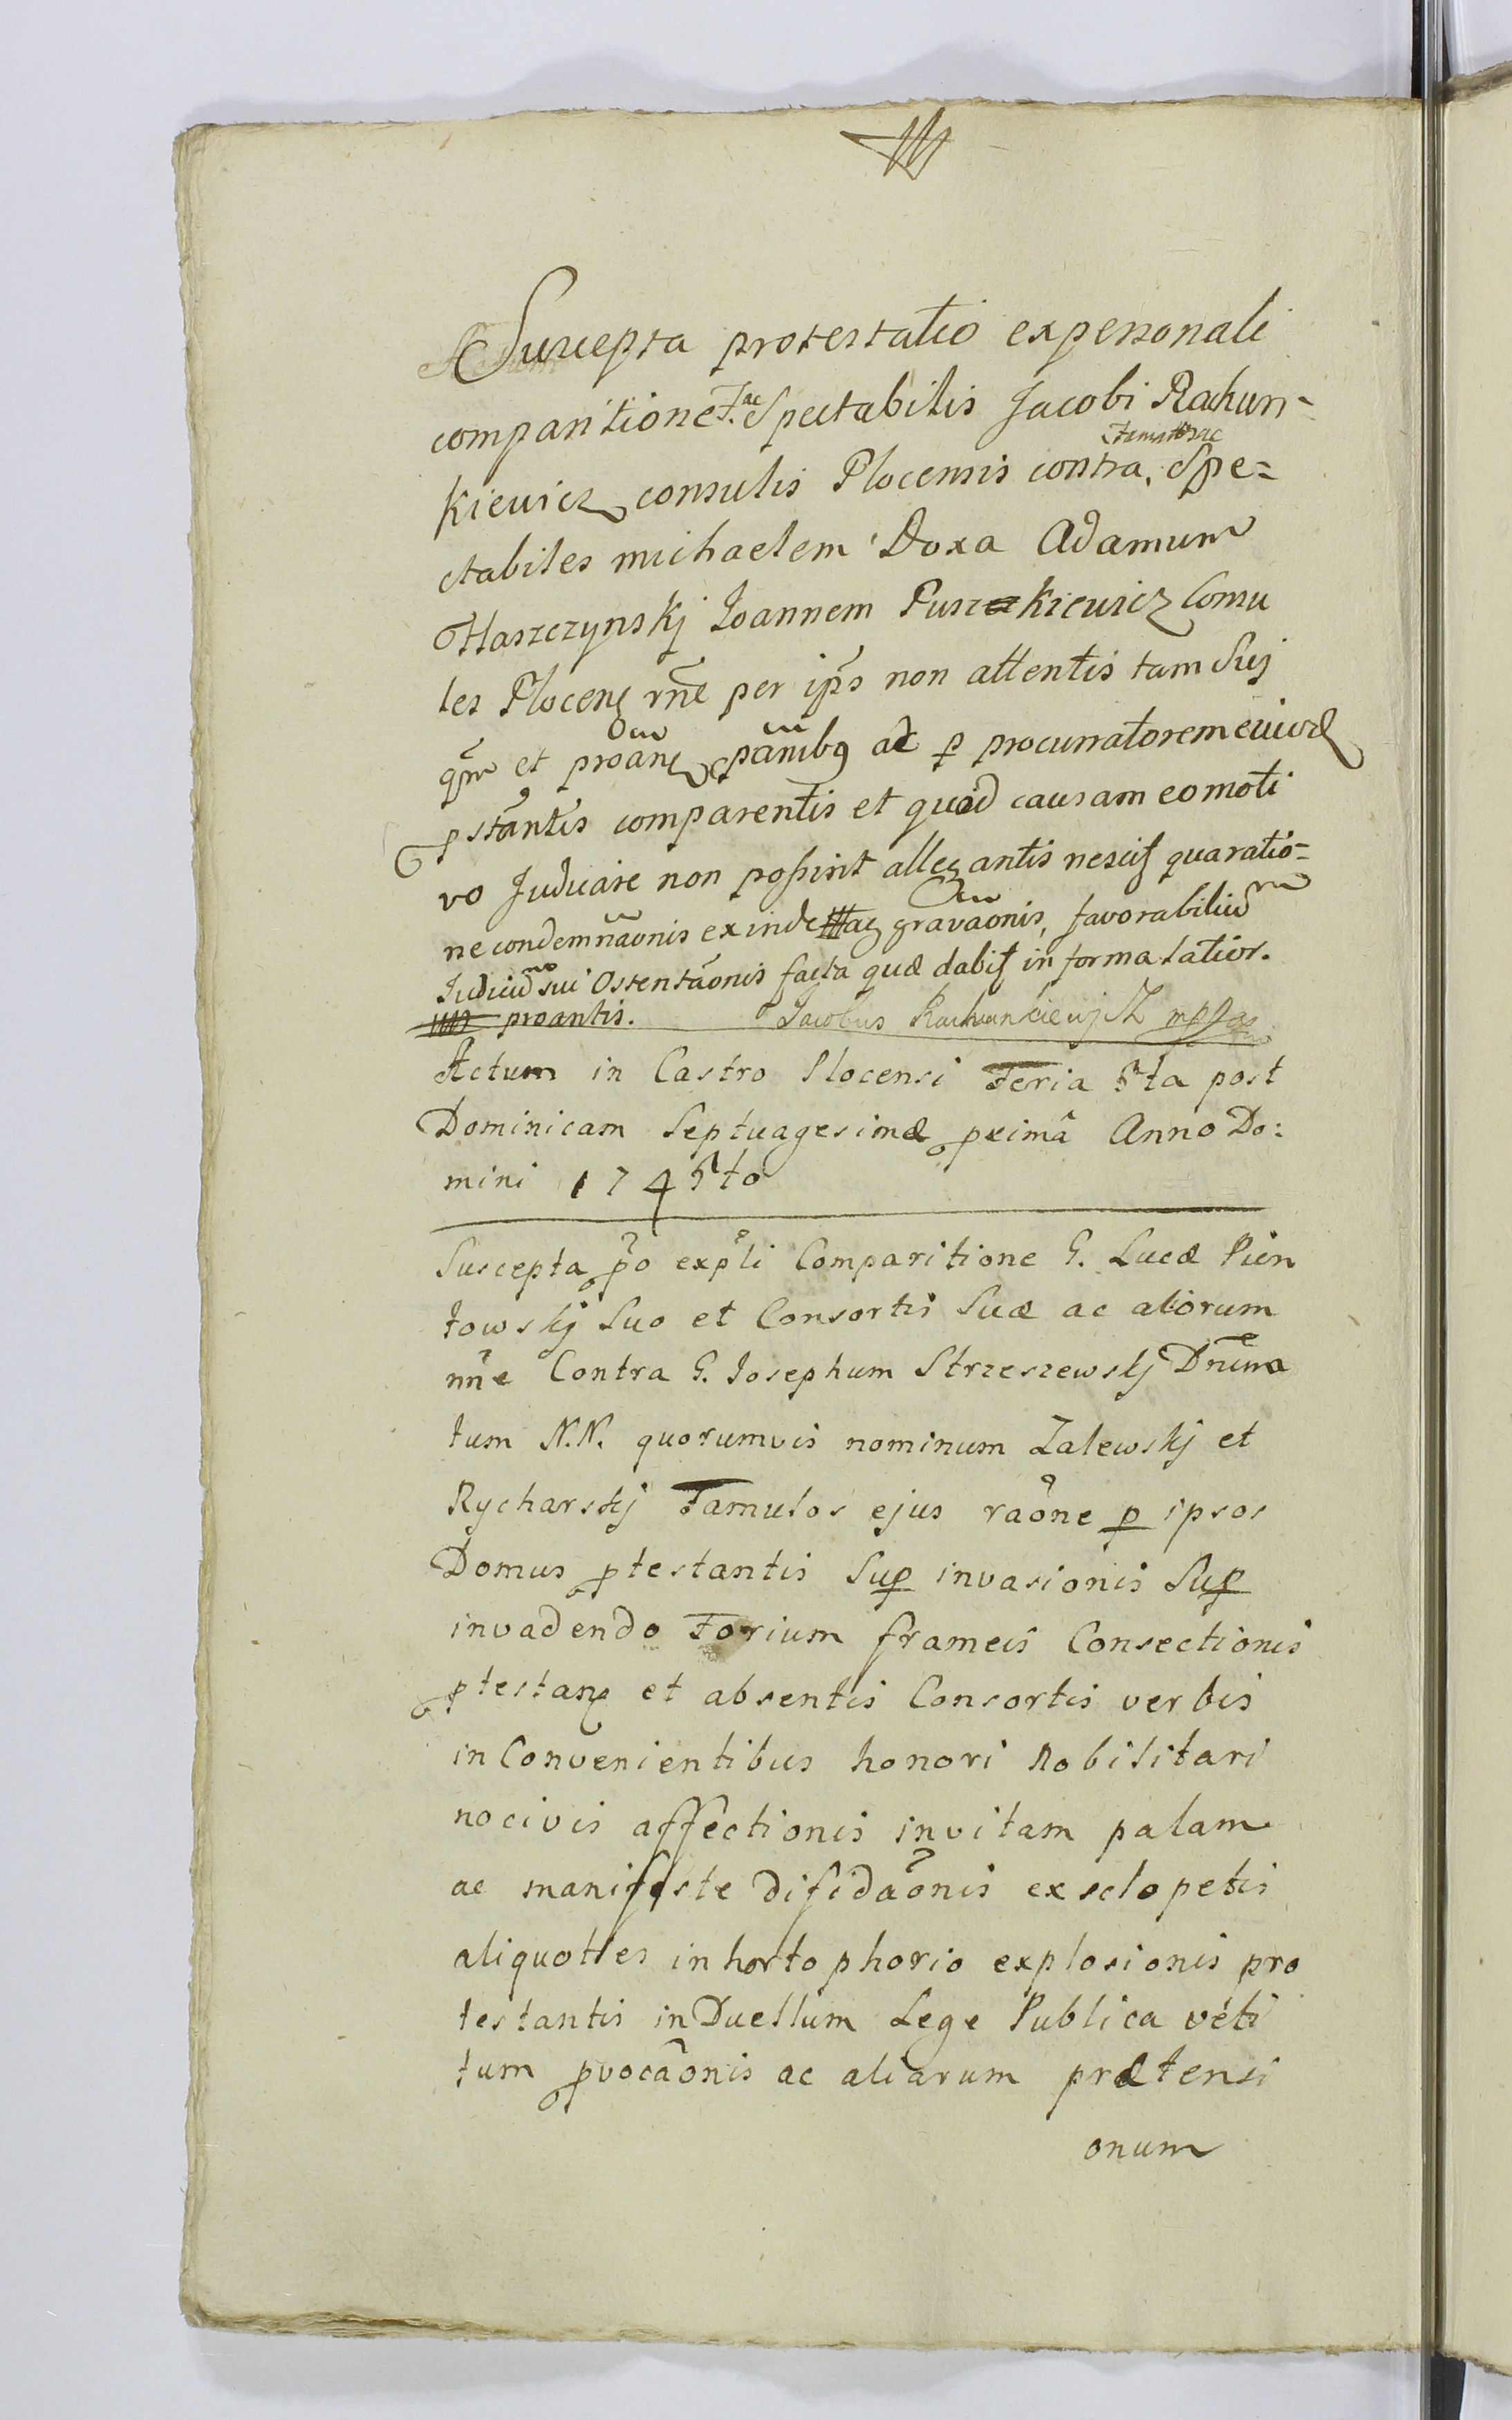 Suscepta protestatio ex personali
comparitione F. ac Spectabilis Jacobi Rachun-
kiewicz consulis Plocensis contra Famatos ac Spe=
ctabiles michaelem Doxa Adamum
Haszczynskj Joannem Puszkiewicz Consu
les Plocen rñe per ips̃ non attentis tam Suj
qm̃ et proãn pãnibq ac p procuratorem eiusd
pstãntis comparentis et quod causam eo moti
vo Judicare non poſsint allegantis nescit qua ratio=
ne condemnãonis exinde ac gravãonis, favorabiliũ
Judiciũ sui Ostensãonis facta quæ dabit in forma latior.
proantis. Jacobus Rachunkiewjcz mpp
Actum in Castro Plocensi Feria 5ta post
Dominicam Septuagesimæ primâ Anno Do:
mini 1745to
Suscepta p̃o exp̃li Comparitione G. Lucæ Pien
towskj Suo et Consortis Suæ ac aliorum
nñe Contra G. Josephum Strzeszewskj Dñum a
tum N.N. quorumvis nominum Zalewskj et
Rycharskj Famulos ejus raõne p ipsos
Domus ptestantis Sup invasionis Sup
invadendo Forium frameis Consectionis
ptestan et absentis Consortis verbis
in Convenientibus honori Nobilitari
nocivis affectionis invitam palam
ac manifeste difidaõnis ex sclopetis
aliquoties in horto phorio explosionis pro
testantis in Duellum Lege Publica veti
tum pvocãonis ac aliarum prætensi
onum